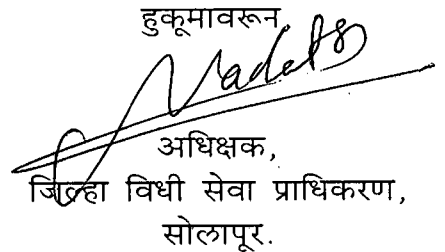 हुकूमावरून
अधिक्षक,
जिल्हा विधी सेवा प्राधिकरण,
सोलापूर.